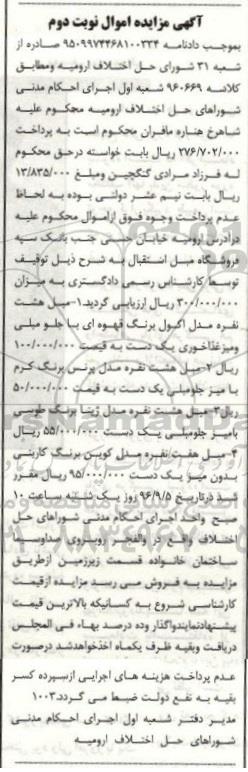 آگهی مزایده اموال نوبت دوم
بموجب دادنامه ۹۵۰۹۹۷۴۴۶۸۱۰۰۳۳۴ صادره از
شعبه ۳۱ شورای حل اختلاف ارومیه ومطابق
کلاسه ۹۶۰۶۶۹ شعبه اول اجرای احکام مدنی
شوراهای حل اختلاف ارومیه محکوم علیه
شاهرخ هناره مافران محکوم است به پرداخت
۲۷۶/۷۰۲/۰۰۰ ریال بابت خواسته درحق محکوم
له فرزاد مرادی گنگچین ومبلغ ۱۳/۸۳۵/۰۰۰
ریال بابت نیم عشر دولتی بوده به لحاظ
عدم پرداخت وجوه فوق ازاموال محکوم علیه
درآدرس ارومیه خیابان حسنی جنب بانک سپه
فروشگاه مبل استقبال به شرح ذیل توقیف
توسط کارشناس رسمی دادگستری به میزان
۳۰۰/۰۰۰/۰۰۰ ریال ارزیابی گردید.۱-مبل هشت
نفره مدل اکول برنگ قهوه ای با جلو مبلی
ومیزغذاخوری یک دست به قیمت ۱۰۰/۰۰۰/۰۰۰
ریال ۲-مبل هشت نفره مدل پرنس برنگ کرم
با میز جلومبلی یک دست به قیمت ۵۰/۰۰۰/۰۰۰
ریال۳-مبل هشت نفره مدل ژینا برنگ طوسی
بامیز جلومبلی یک دست ۵۵/۰۰۰/۰۰۰ ریال
۴-مبل هفت نفره مدل کوین برنگ کاربنی
بدون میز یک دست ۹۵/۰۰۰/۰۰۰ ریال مقرر
شد درتاریخ ۹۶/۹/۵ روز یک شنبه ساعت ۱۰
صبح واحد اجرای احکام مدنی شوراهای حل
اختلاف واقع در والفجر روبروی صداوسیما
ساختمان خانواده قسمت زیرزمین ازطریق
مزایده به فروش می رسد مزایده ازقیمت
کارشناسی شروع به کسانیکه بالاترین قیمت
پیشنهادنمایندواگذار وده درصد بهاء فی المجلس
دریافت وبقیه ظرف یکماه اخذخواهدشد درصورت
عدم پرداخت هزینه های اجرایی ازسپرده کسر
بقیه به نفع دولت ضبط می گردد.۱۰۰۳
مدیر دفتر شعبه اول اجرای احکام مدنی
شوراهای حل اختلاف ارومیه